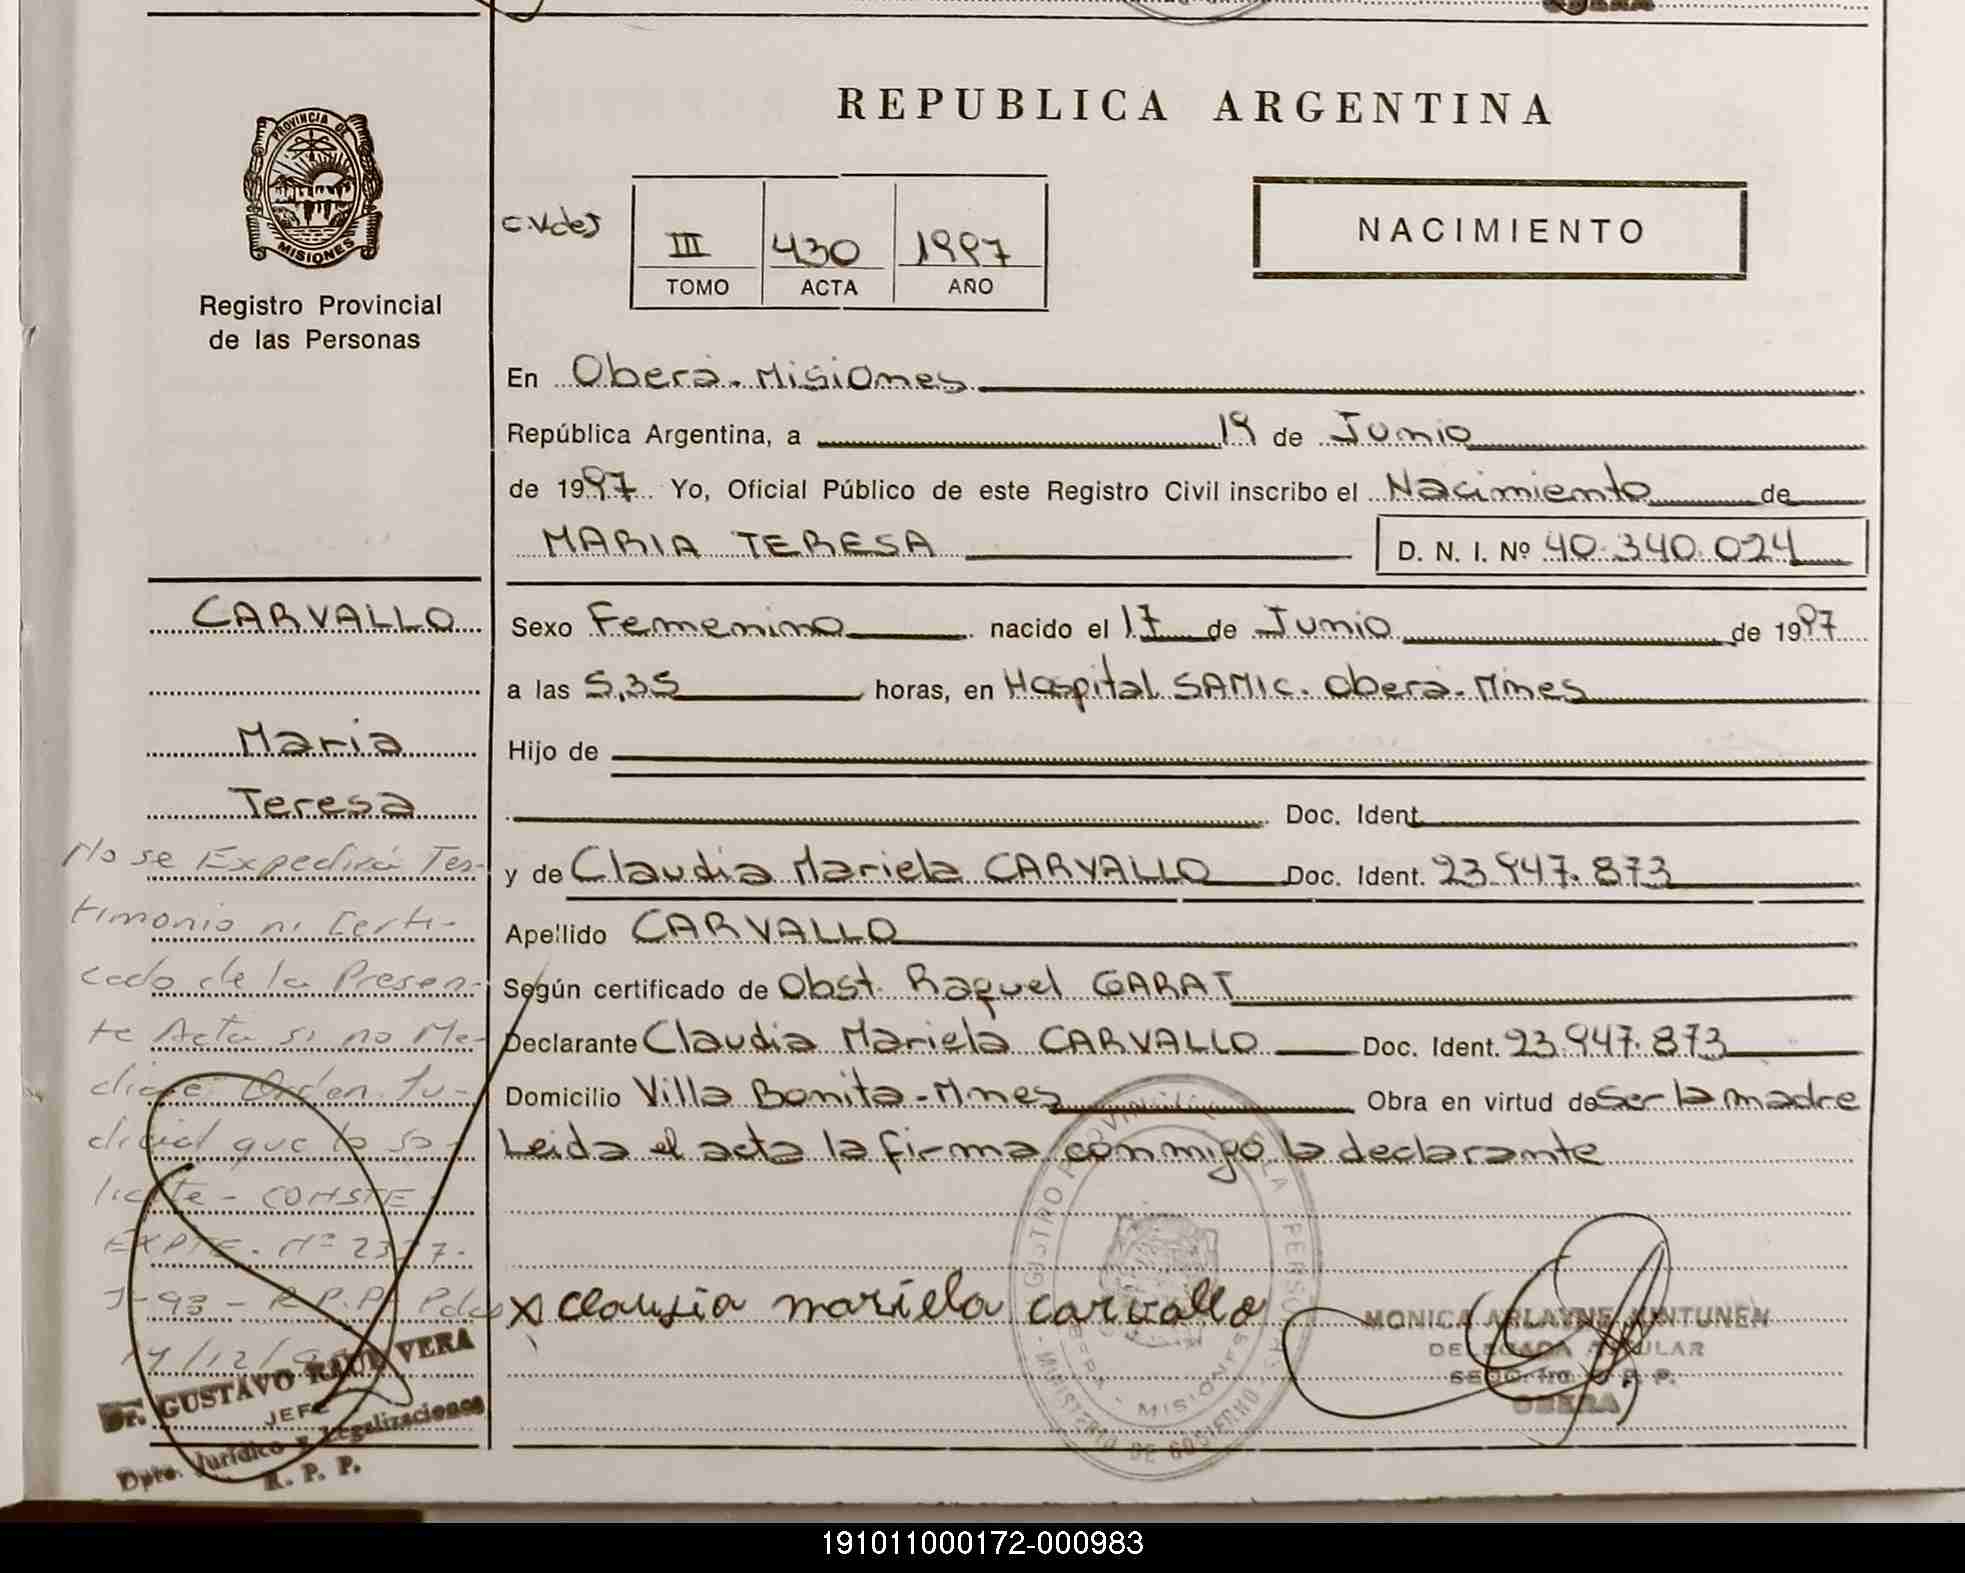 PROVINCIA DE
MISIONES
Registro Provincial
de las Personas
REPUBLICA ARGENTINA
III 430 1997
TOMO ACTA AÑO
NACIMIENTO
En Oberá - Misiones
República Argentina, a 19 de Junio
de 1997 Yo, Oficial Público de este Registro Civil inscribo el Nacimiento de
MARIA TERESA D. N. I. Nº 40.340.024
Sexo Femenino nacido el 17 de Junio de 1997
a las 5,35 horas, en Hospital SAMIC. Oberá - Mnes
Hijo de
Doc. Ident.
y de Claudia Mariela CARVALLO Doc. Ident. 23.947.873
Apellido CARVALLO
Según certificado de Obst. Raquel GARAT
Declarante Claudia Mariela CARVALLO Doc. Ident. 23.947.873
Domicilio Villa Bonita - Mnes Obra en virtud de Ser la madre
Leida el acta la firma conmigo la declarante
x claudia mariela carvallo
MONICA ARLAYNE KINTUNEN
DELEGADA TITULAR
R. P.
OBERA
MISIONES
MINISTERIO DE GOBIERNO
CARVALLO
Maria
Teresa
No se Expedirá Tes-
timonio ni Certi-
cado de la Presen-
te Acta si no Me-
diare Orden Ju-
dicial que lo so-
licite - CONSTE
EXPTE. Nº
J-93 - R.P.P. Pdas
Dr. GUSTAVO RAUL VERA
JEFE
Dpto. Jurídico y Legalizaciones
R. P. P.
191011000172-000983